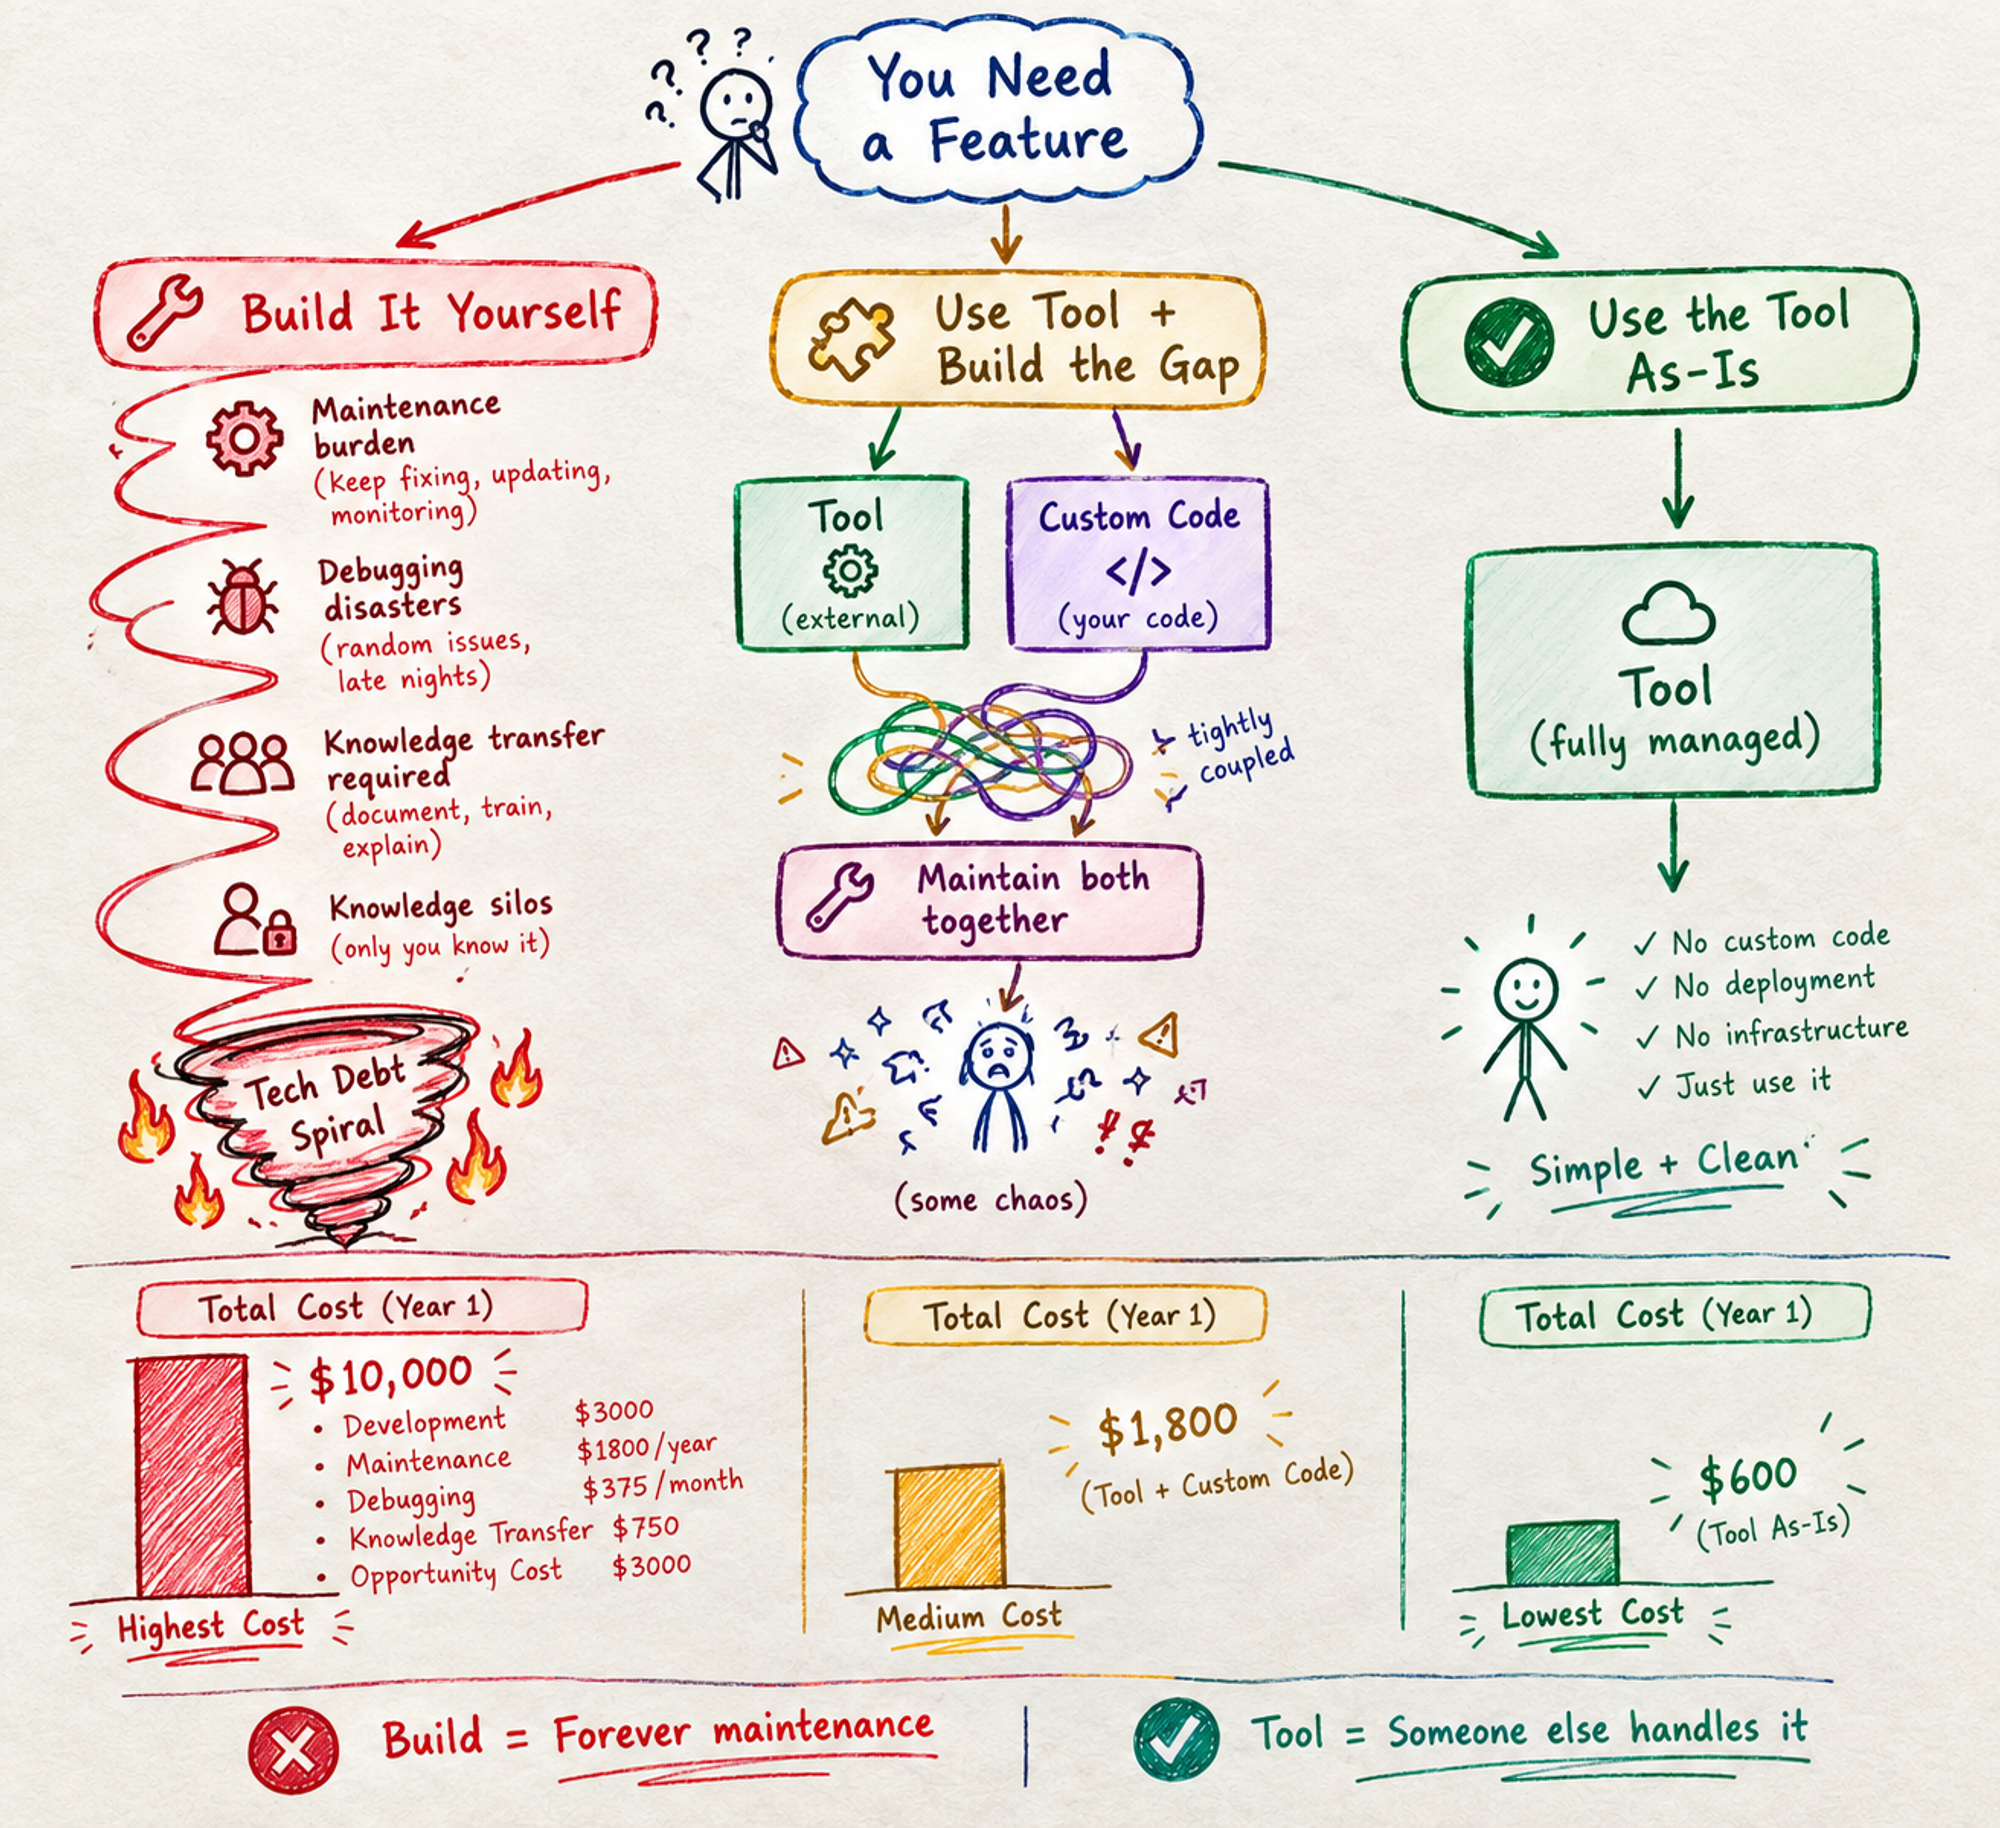 ? ? ? ?
You Need
a Feature
Build It Yourself
Maintenance
burden
(keep fixing, updating,
monitoring)
Debugging
disasters
(random issues,
late nights)
Knowledge transfer
required
(document, train,
explain)
Knowledge silos
(only you know it)
Tech Debt
Spiral
Use Tool +
Build the Gap
Tool
(external)
Custom Code
</>
(your code)
tightly
coupled
Maintain both
together
(some chaos)
Use the Tool
As-Is
Tool
(fully managed)
✓ No custom code
✓ No deployment
✓ No infrastructure
✓ Just use it
Simple + Clean
Total Cost (Year 1)
$10,000
• Development $3000
• Maintenance $1800/year
• Debugging $375/month
• Knowledge Transfer $750
• Opportunity Cost $3000
Highest Cost
Total Cost (Year 1)
$1,800
(Tool + Custom Code)
Medium Cost
Total Cost (Year 1)
$600
(Tool As-Is)
Lowest Cost
Build = Forever maintenance
Tool = Someone else handles it